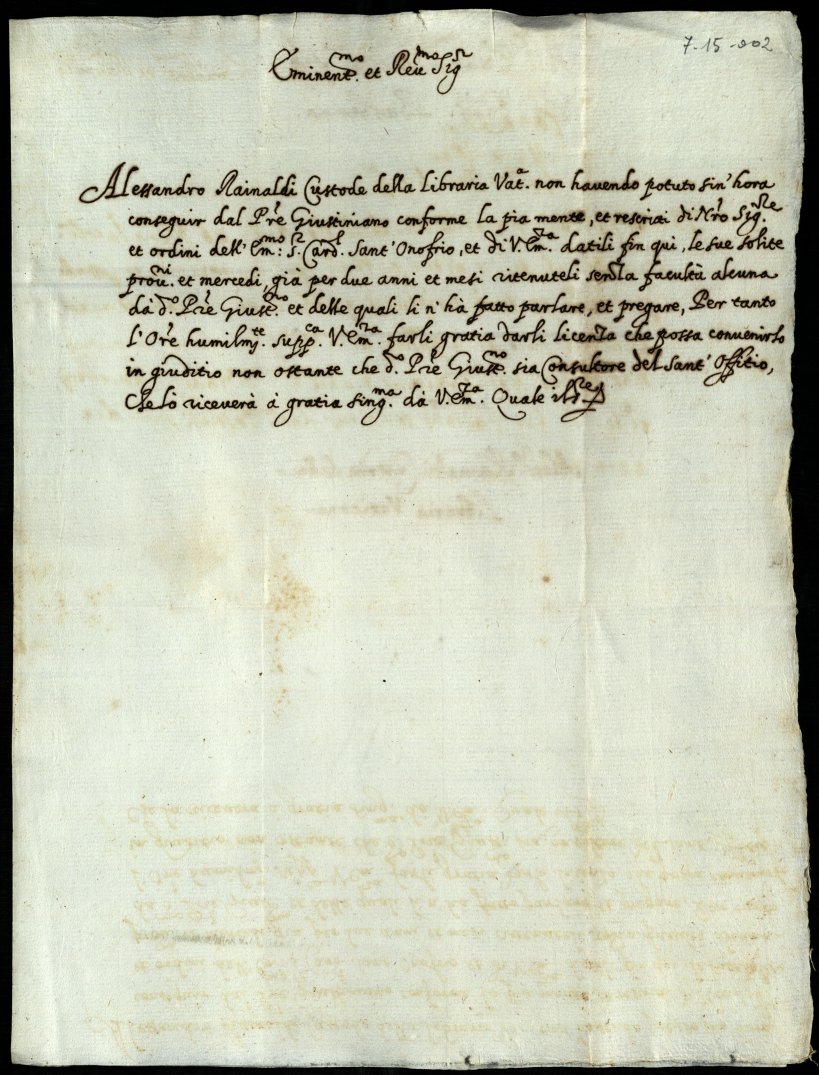 7-15-002
Eminent.mo et Reu.mo Sig.r
Alessandro Rainaldi Custode della Libraria Vat.a non hauendo potuto sin'hora
conseguir dal P're Giustiniano conforme la pia mente, et rescritti di N'ro Sig.re
et ordini dell'Em.mo S.r Card.l Sant'Onofrio, et di V.Em.za datili fin qui, le sue solite
prou.ni et mercedi, già per due anni et mesi ritenuteli senza facultà alcuna
da d.o P're Giust.no et delle quali li n'hà fatto parlare, et pregare, Per tanto
l'Ore humilm.te supp.ca V.Em.za farli gratia darli licenza che possa convenirlo
in giuditio non ostante che d.o P're Giust.no sia Consultore del Sant'Offitio,
Che lo riceverà à gratia sing.ma da V.Em.za. Quale